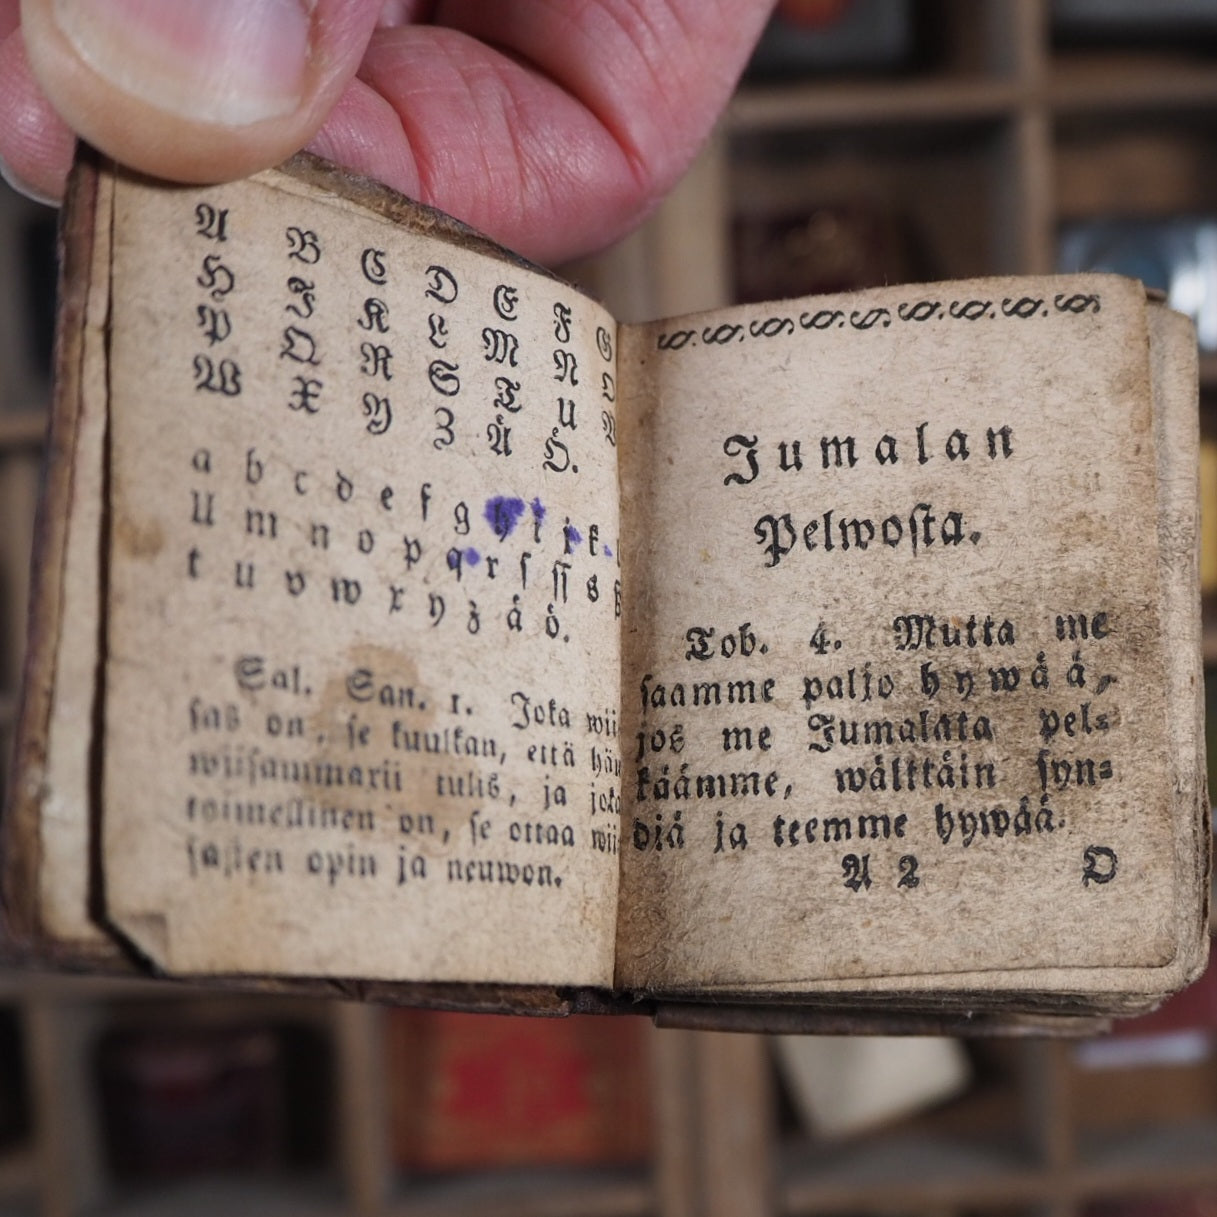 A B C D E F G
H I K L M N O
P Q R S T U V
W X Y Z Å Ö.
a b c d e f g h i j k l
ll m n o p q r ſ ſſ s ß
t u v w x y z å ö.
Sal. San. 1. Joka wii
ſas on, ſe kuulkan, että hän
wiiſammaxii tulis, ja joka
toimellinen on, ſe ottaa wii
ſaſten opin ja neuwon.
Jumalan
Pelwoſta.
Tob. 4. Mutta me
ſaamme paljo hywää,
jos me Jumalata pel⸗
käämme, wälttäin ſyn⸗
diä ja teemme hywää.
A 2 O